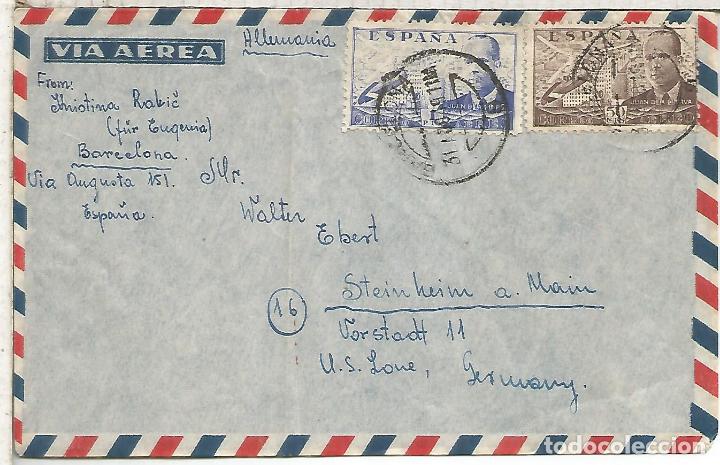 VIA AEREA
Allemania
From:
Khristina Rakič
(für Eugenia)
Barcelona.
Via Augusta 151.
España.
Mr.
Walter
Ebert
Steinheim a. Main
16
Vorstadt 11
U.S. Zone,
Germany.
ESPAÑA
JUAN DE LA CIERVA
CORREO AEREO
ESPAÑA
JUAN DE LA CIERVA
50
CORREO AEREO
todocoleccion.net